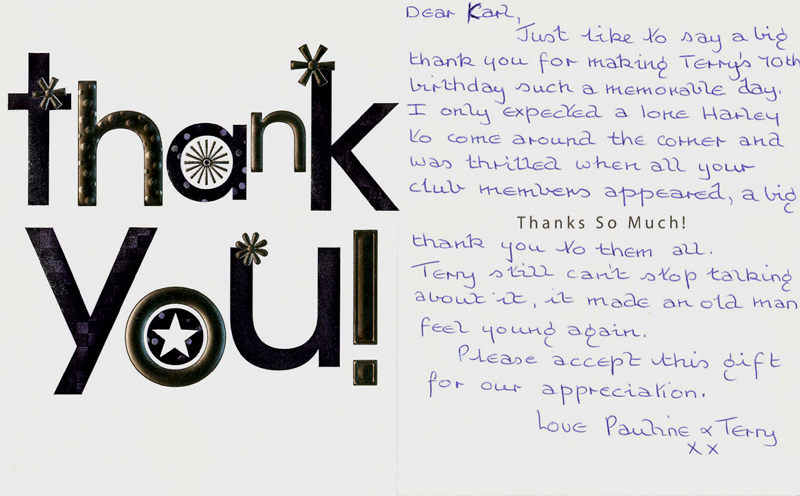 thank
you!
Dear Karl,
Just like to say a big
thank you for making Terry's 70th
birthday such a memorable day.
I only expected a lone Harley
to come around the corner and
was thrilled when all your
club members appeared, a big
Thanks So Much!
thank you to them all.
Terry still can't stop talking
about it, it made an old man
feel young again.
Please accept this gift
for our appreciation.
Love Pauline & Terry
x x